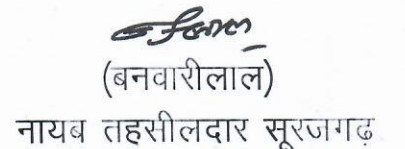 (बनवारीलाल)
नायब तहसीलदार सूरजगढ़